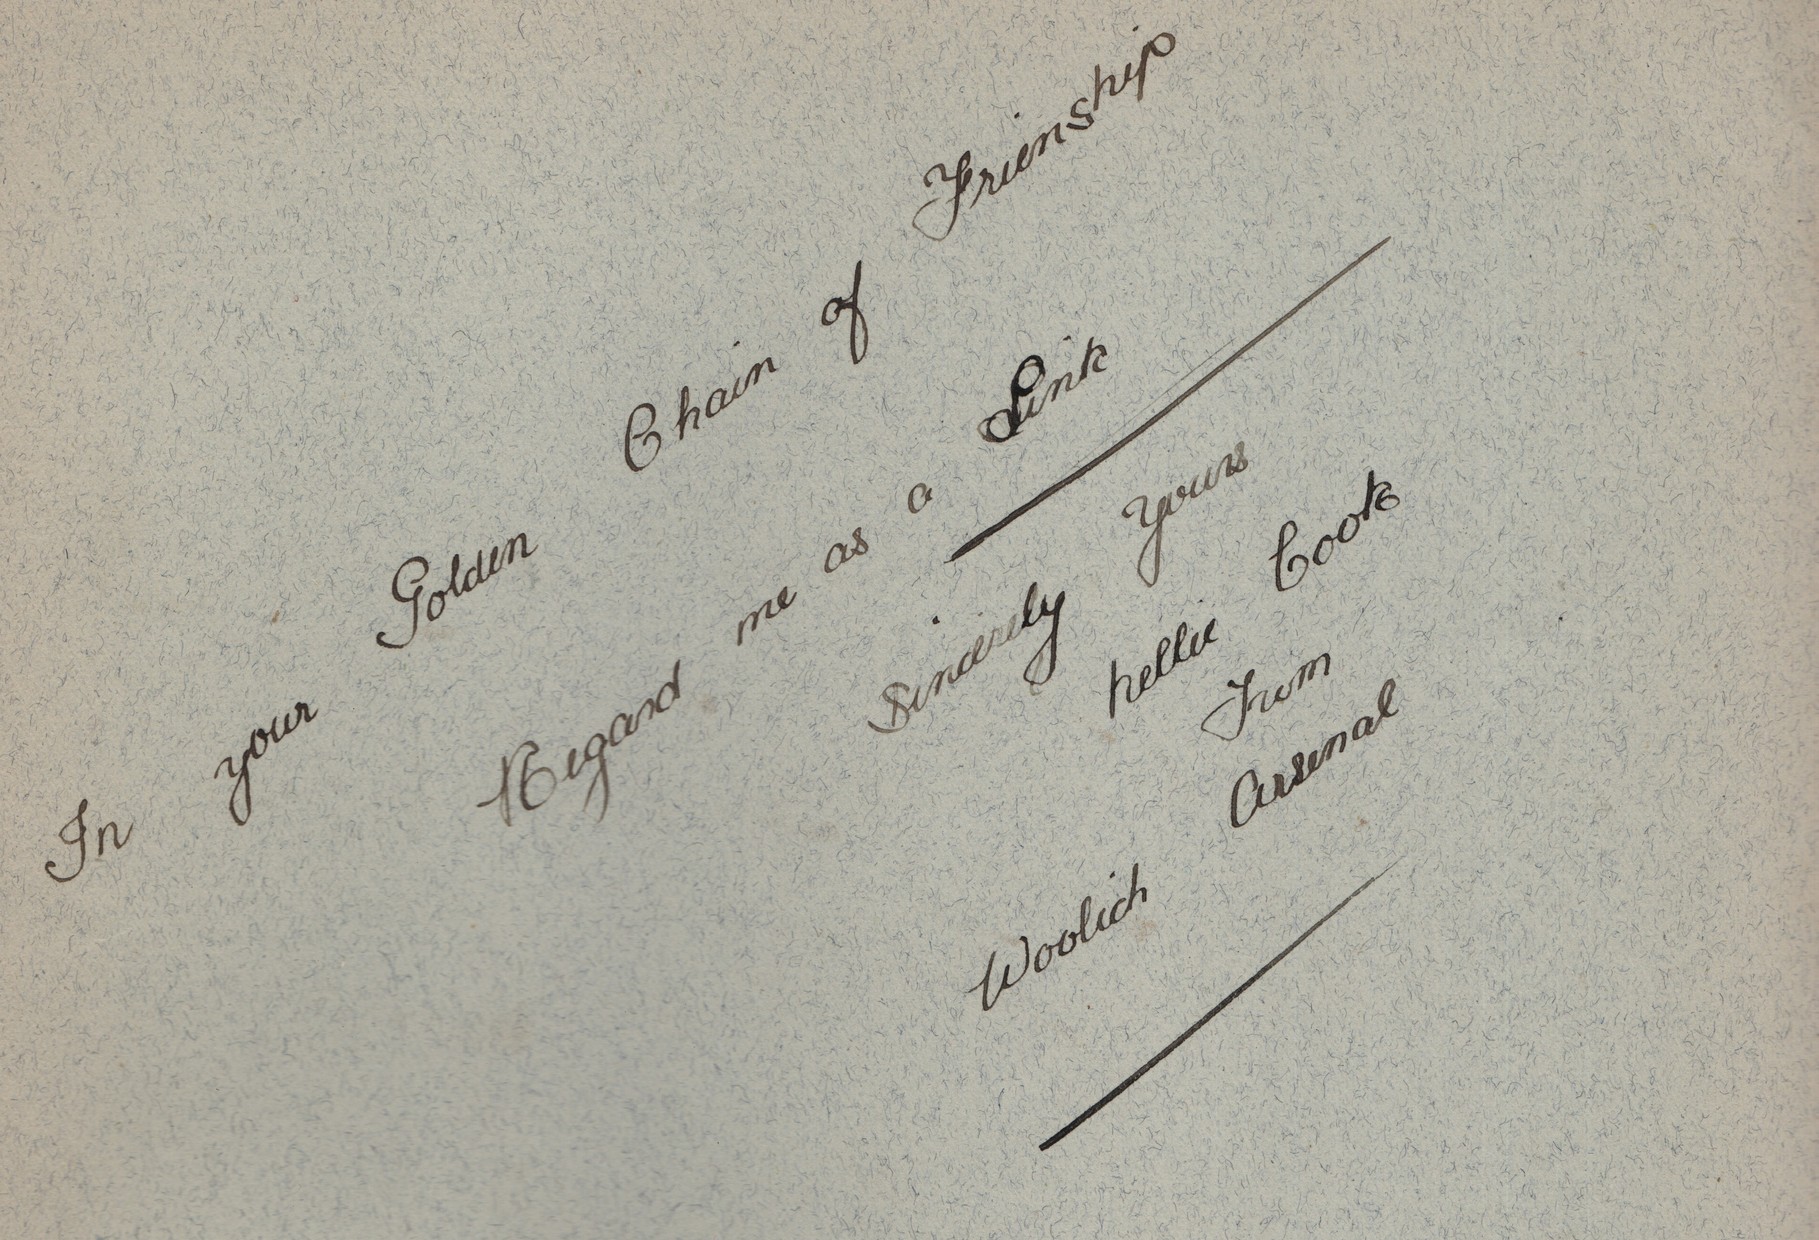 In your Golden Chain of Frienship
Regard me as a Link
Sincerely Yours
nellie Cook
From
Woolich Arsenal